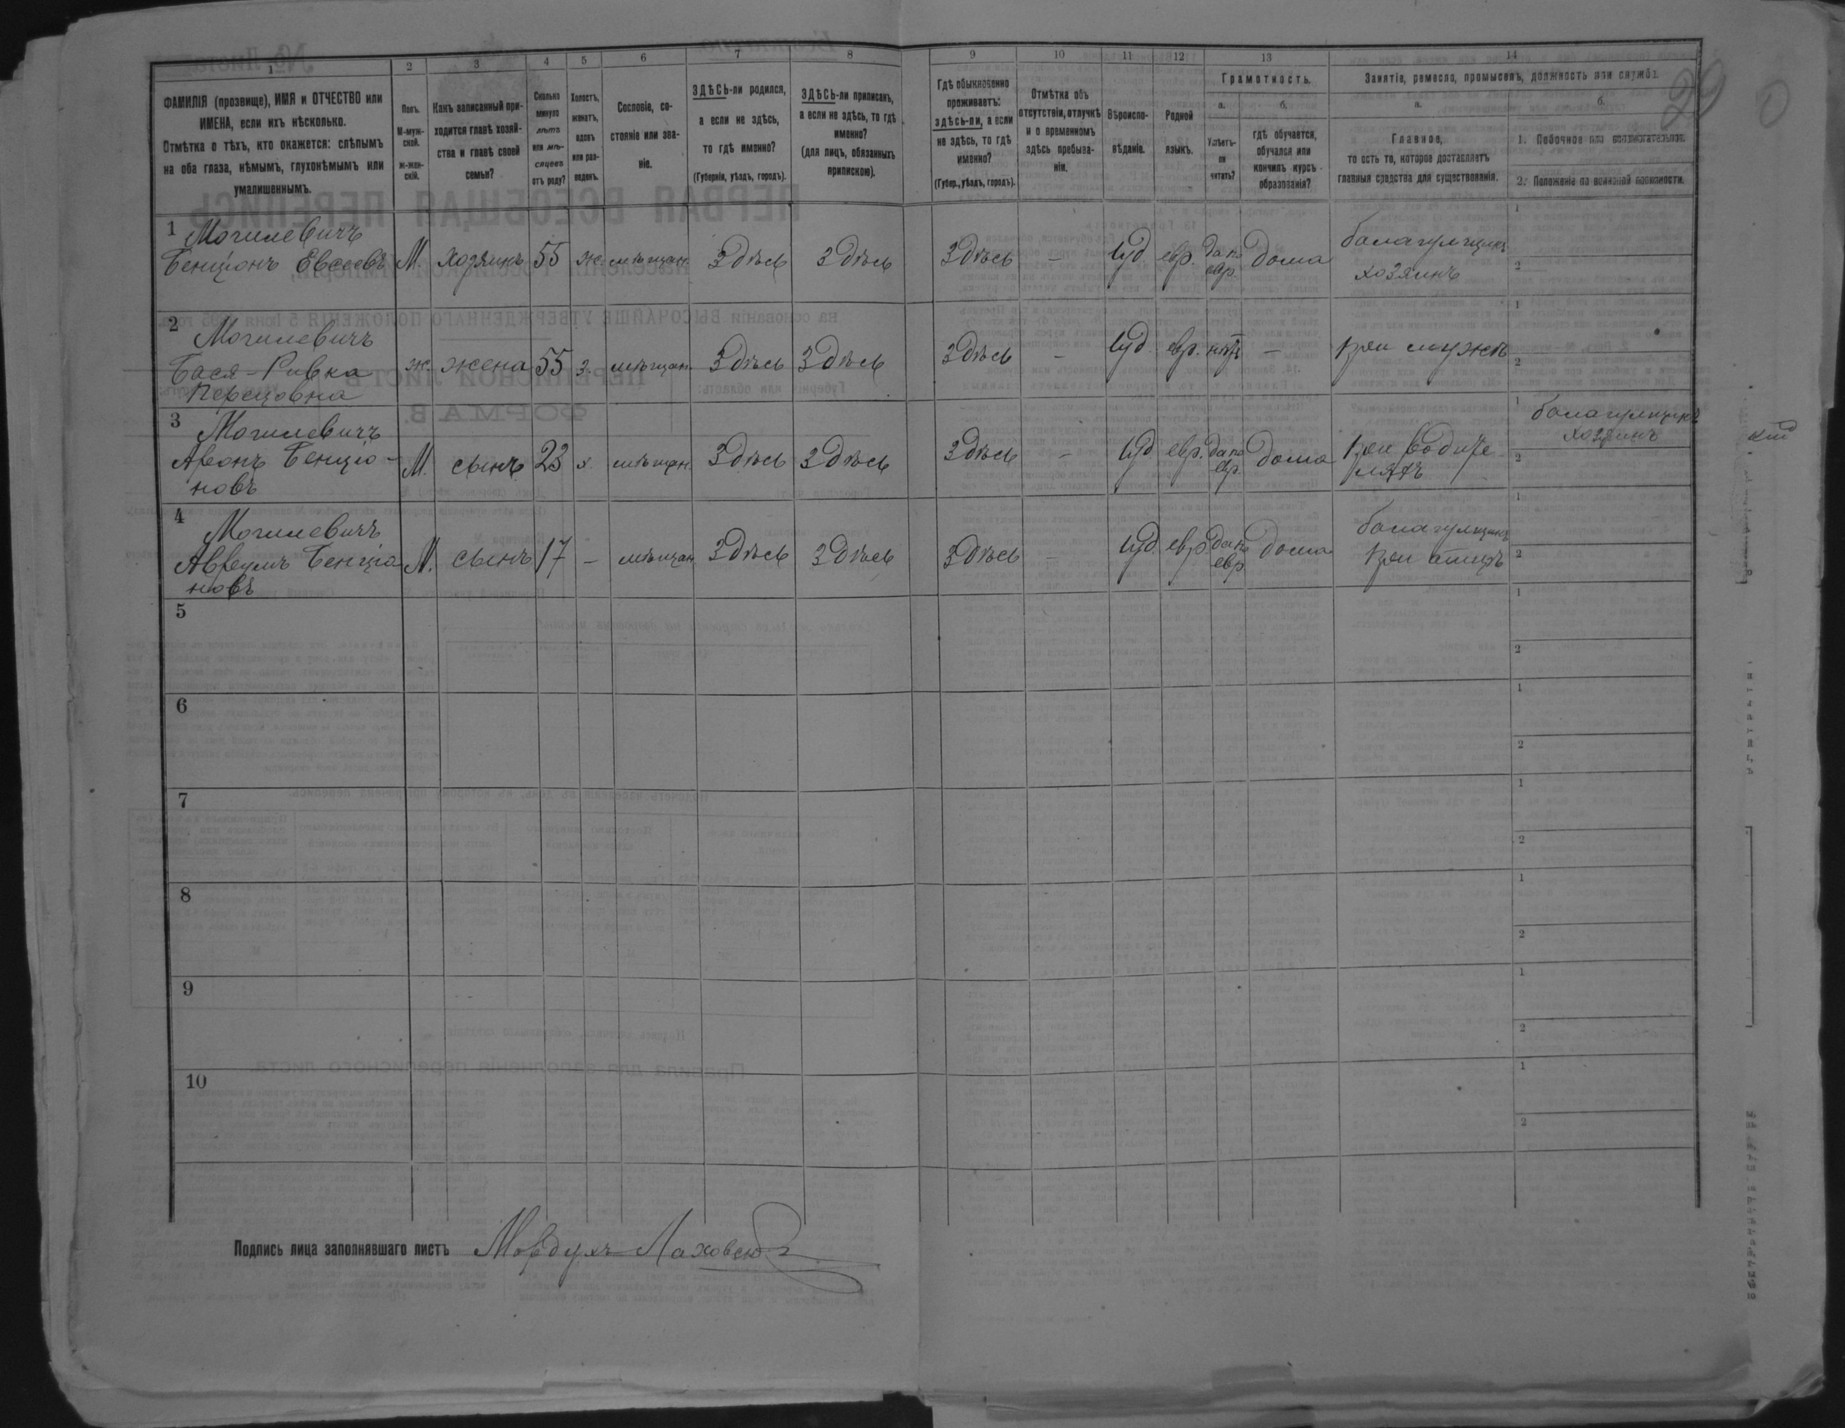 1 2 3 4 5 6 7 8 9 10 11 12 13 14
ФАМИЛІЯ (прозвище), ИМЯ и ОТЧЕСТВО или
ИМЕНА, если ихъ нѣсколько.
Отмѣтка о тѣхъ, кто окажется: слѣпымъ
на оба глаза, нѣмымъ, глухонѣмымъ или
умалишеннымъ.
Полъ.
М-муж-
ской.
ж-жен-
скій.
Какъ записанный при-
ходится главѣ хозяй-
ства и главѣ своей
семьи?
Сколько
минуло
лѣтъ
или мѣ-
сяцевъ
отъ роду?
Холостъ,
женатъ,
вдовъ
или раз-
веденъ.
Сословіе, со-
стояніе или зва-
ніе.
ЗДѢСЬ-ли родился,
а если не здѣсь,
то гдѣ именно?
(Губернія, уѣздъ, городъ).
ЗДѢСЬ-ли приписанъ,
а если не здѣсь, то гдѣ
именно?
(для лицъ, обязанныхъ
припискою).
Гдѣ обыкновенно
проживаетъ:
здѣсь-ли, а если
не здѣсь, то гдѣ
именно?
(Губер., уѣздъ, городъ).
Отмѣтка объ
отсутствіи, отлучкѣ
и о временномъ
здѣсь пребыва-
ніи.
Вѣроиспо-
вѣданіе.
Родной
языкъ.
Грамотность.
а.
Умѣетъ-
ли
читать?
б.
гдѣ обучается,
обучался или
кончилъ курсъ
образованія?
Занятіе, ремесло, промыселъ, должность или служба.
а.
Главное,
то есть то, которое доставляетъ
главныя средства для существованія.
б.
1. Побочное или вспомогательное.
2. Положеніе по воинской повинности.
29
1 Могилевичъ
Бенціонъ Евсеевъ М. хозяинъ 55 ж. мѣщан. здѣсь здѣсь здѣсь – іуд евр. да по евр. дома балагульщикъ
хозяинъ
2 Могилевичъ
Бася-Ривка
Перецовна ж. жена 55 з. мѣщан. здѣсь здѣсь здѣсь – іуд. евр. нѣтъ – при мужѣ
3 Могилевичъ
Аронъ Бенціо-
новъ М. сынъ 23 х мѣщан. здѣсь здѣсь здѣсь – іуд евр. да по евр. дома при родите
ляхъ
балагульщикъ
хозяинъ
4 Могилевичъ
Авреумъ Бенціо
новъ М. сынъ 17 – мѣщан. здѣсь здѣсь здѣсь – іуд евр. да по евр дома балагульщикъ
при отцѣ
5
6
7
8
9
10
Подпись лица заполнявшаго листъ Мордухъ Лаховскій